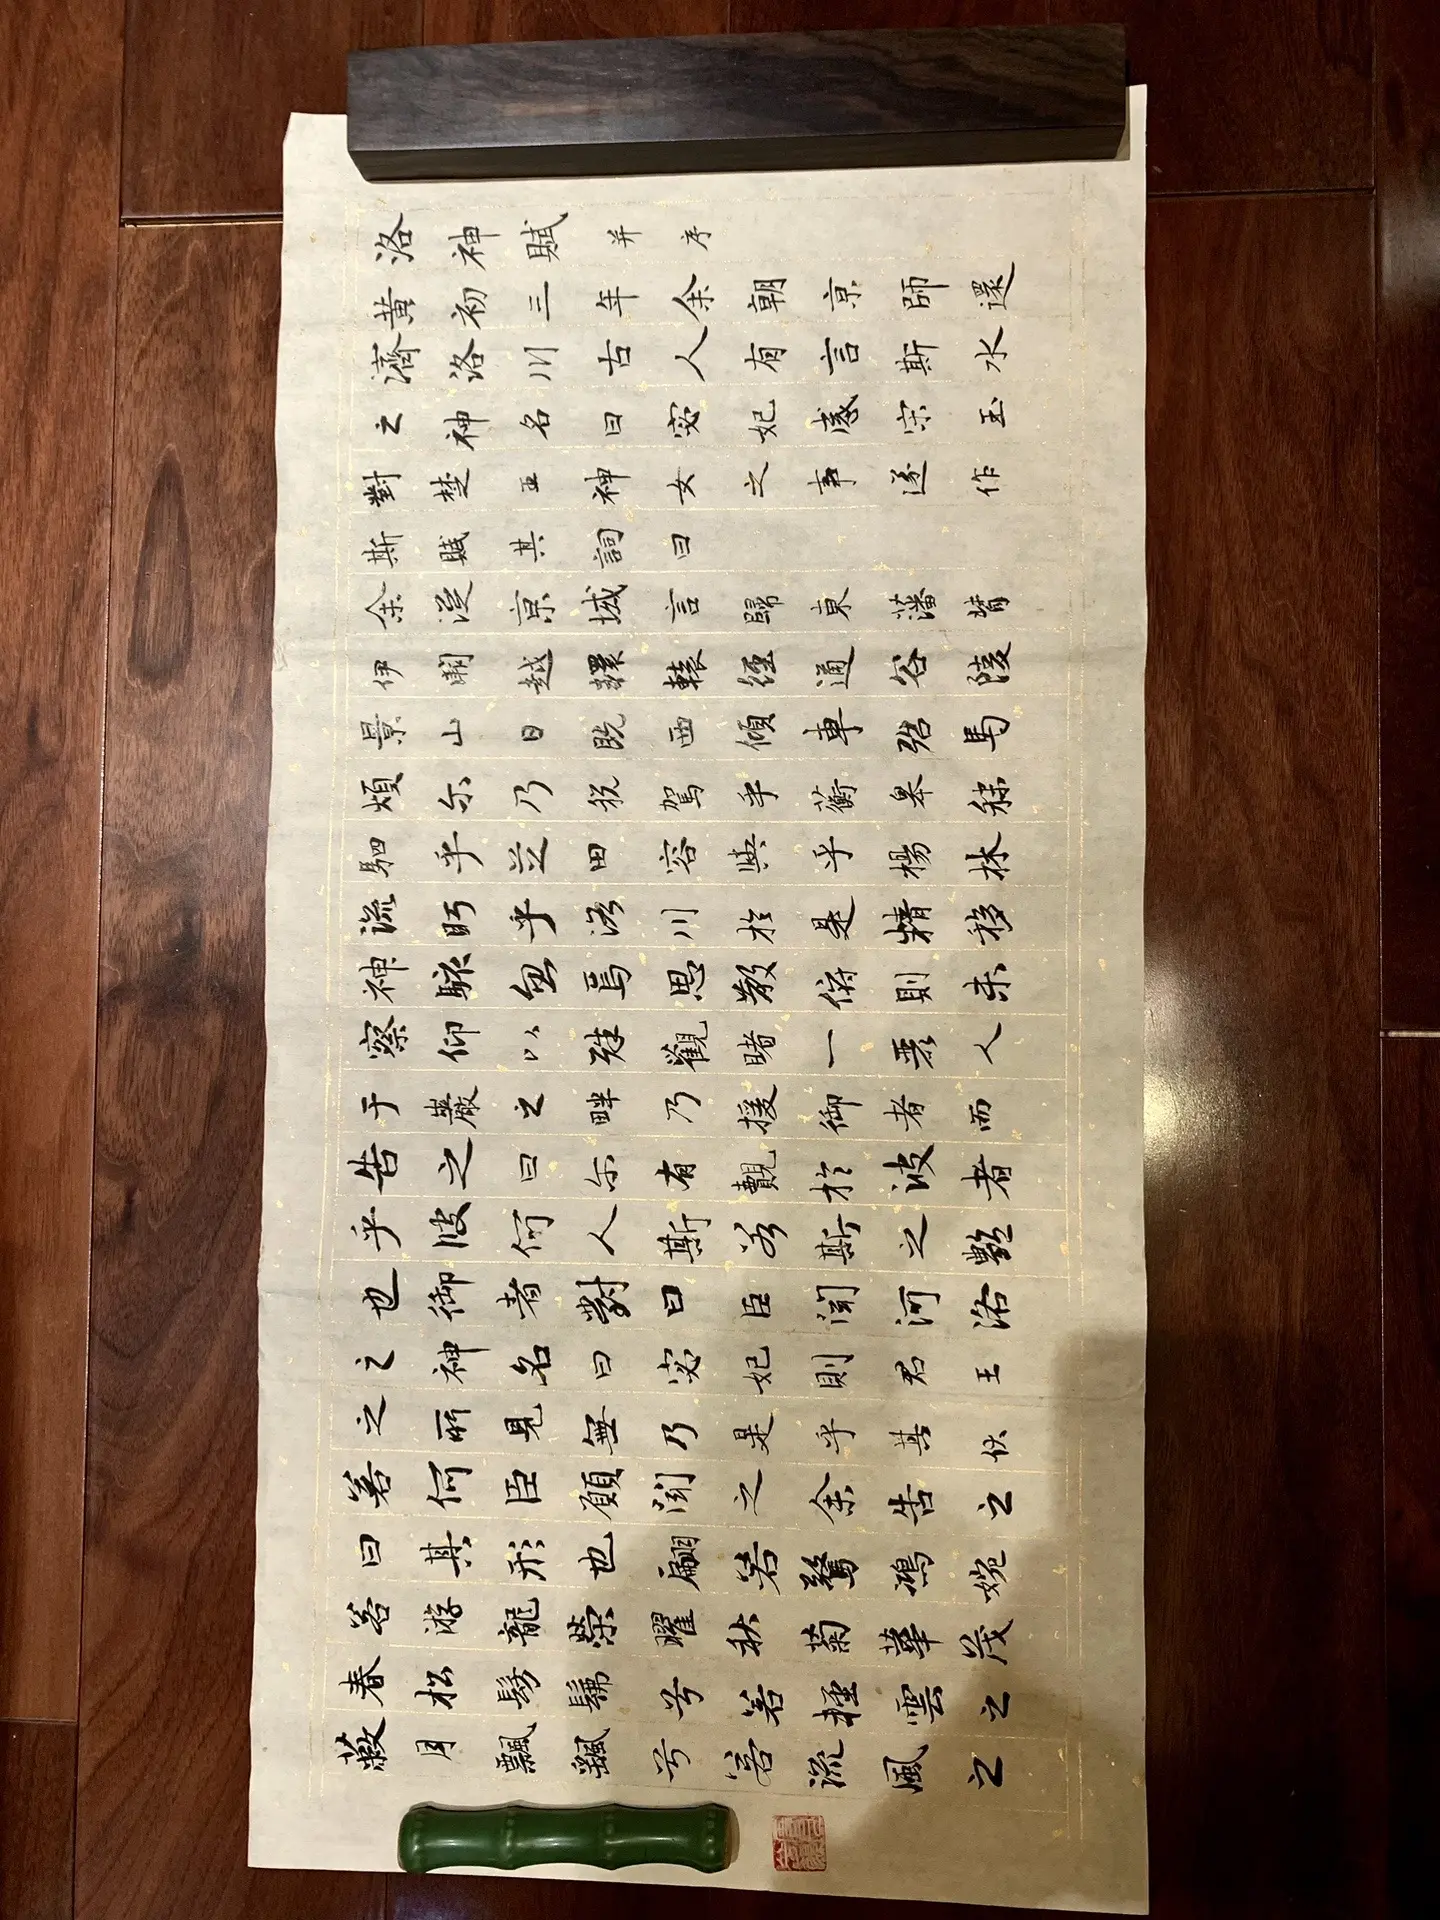 洛神賦并序
黃初三年余朝京師還
濟洛川古人有言斯水
之神名曰宓妃感宋玉
對楚王神女之事遂作
斯賦其詞曰
余從京城言歸東藩背
伊闕越轘轅經通谷陵
景山日既西傾車殆馬
煩尔乃稅駕乎蘅皋秣
駟乎芝田容與乎楊林
流眄乎洛川於是精移
神駭忽焉思散俯則未
察仰以殊觀睹一麗人
于巖之畔乃援御者而
告之曰尔有覿於彼者
乎彼何人斯若斯之艷
也御者對曰臣聞河洛
之神名曰宓妃則君王
之所見無乃是乎其狀
若何臣願聞之余告之
曰其形也翩若驚鴻婉
若游龍榮曜秋菊華茂
春松髣髴兮若輕雲之
蔽月飄颻兮若流風之